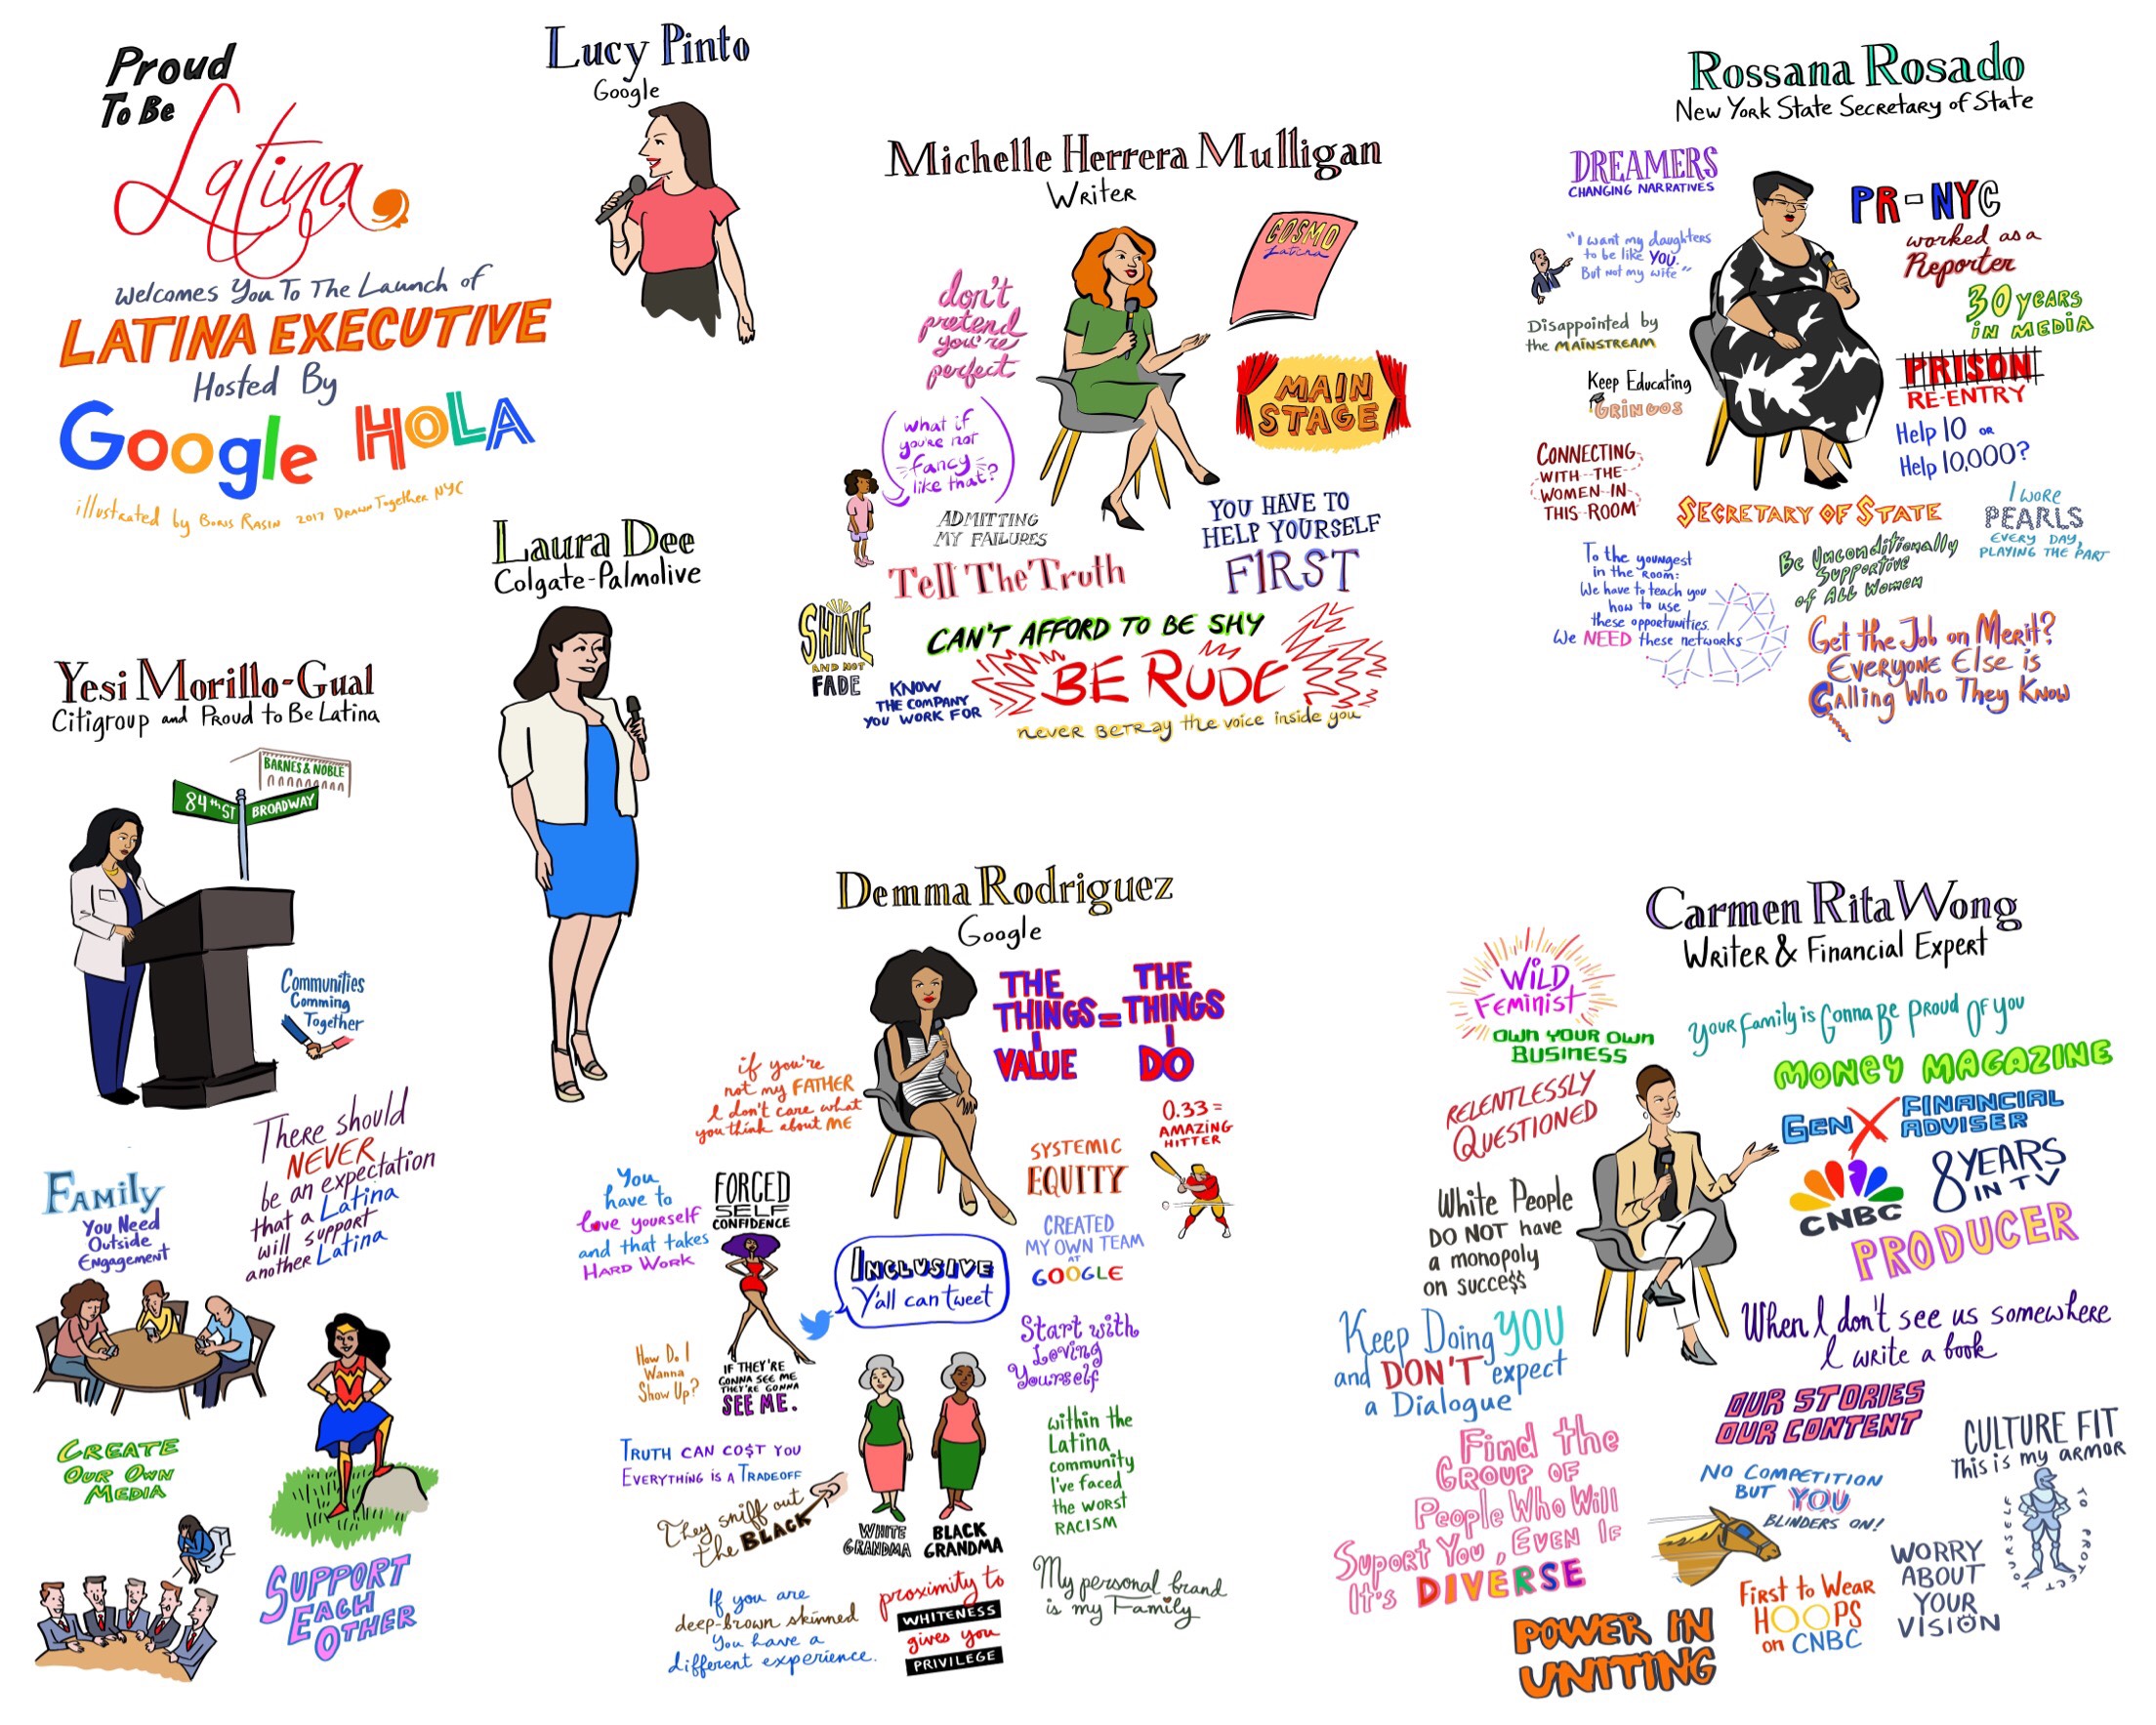 Proud
To Be
Latina
Welcomes You To The Launch of
LATINA EXECUTIVE
Hosted By
Google HOLA
illustrated by Boris Rasin 2017 Drawn Together NYC
Lucy Pinto
Google
Michelle Herrera Mulligan
Writer
COSMO
Latina
don't
pretend
you're
perfect
MAIN
STAGE
what if
you're not
fancy
like that?
ADMITTING
MY FAILURES
YOU HAVE TO
HELP YOURSELF
FIRST
Tell The Truth
SHINE
AND NOT
FADE
CAN'T AFFORD TO BE SHY
BE RUDE
KNOW
THE COMPANY
YOU WORK FOR
never betray the voice inside you
Rossana Rosado
New York State Secretary of State
DREAMERS
CHANGING NARRATIVES
PR-NYC
worked as a
Reporter
"I want my daughters
to be like YOU.
But not my wife"
30 years
in media
Disappointed by
the MAINSTREAM
PRISON
RE-ENTRY
Keep Educating
GRINGOS
Help 10 or
Help 10,000?
CONNECTING
WITH THE
WOMEN IN
THIS ROOM
SECRETARY OF STATE
I wore
PEARLS
EVERY DAY,
PLAYING THE PART
To the youngest
in the room:
We have to teach you
how to use
these opportunities.
We NEED these networks
Be Unconditionally
Supportive
of ALL Women
Get the Job on Merit?
Everyone Else is
Calling Who They Know
Laura Dee
Colgate-Palmolive
Yesi Morillo-Gual
Citigroup and Proud to Be Latina
BARNES & NOBLE
84th ST BROADWAY
Communities
Comming
Together
There should
NEVER
be an expectation
that a Latina
will support
another Latina
FAMILY
You Need
Outside
Engagement
CREATE
OUR OWN
MEDIA
SUPPORT
EACH
OTHER
Demma Rodriguez
Google
THE THINGS I VALUE = THE THINGS I DO
if you're
not my FATHER
I don't care what
you think about ME
0.33 =
AMAZING
HITTER
SYSTEMIC
EQUITY
You
have to
love yourself
and that takes
HARD WORK
FORCED
SELF
CONFIDENCE
CREATED
MY OWN TEAM
AT
GOOGLE
INCLUSIVE
Y'all can tweet
How Do I
Wanna
Show Up?
IF THEY'RE
GONNA SEE ME
THEY'RE GONNA
SEE ME.
Start with
Loving
Yourself
TRUTH CAN CO$T YOU
EVERYTHING IS A TRADEOFF
They sniff out
the BLACK
WHITE
GRANDMA
BLACK
GRANDMA
within the
Latina
community
I've faced
the worst
RACISM
If you are
deep-brown skinned
You have a
different experience.
proximity to
WHITENESS
gives you
PRIVILEGE
My personal brand
is my Family
Carmen Rita Wong
Writer & Financial Expert
WILD
FEMINIST
OWN YOUR OWN
BUSINESS
Your family is Gonna Be Proud Of You
MONEY MAGAZINE
RELENTLESSLY
QUESTIONED
GEN X FINANCIAL
ADVISER
CNBC
8 YEARS
IN TV
PRODUCER
White People
DO NOT have
a monopoly
on succe$$
Keep Doing YOU
and DON'T expect
a Dialogue
When I don't see us somewhere
I write a book
OUR STORIES
OUR CONTENT
CULTURE FIT
This is my ARMOR
TO PROTECT YOURSELF
Find the
GROUP OF
People Who Will
Suport You, Even If
It's DIVERSE
NO COMPETITION
BUT YOU
BLINDERS ON!
First to Wear
HOOPS
on CNBC
WORRY
ABOUT
YOUR
VISION
POWER IN
UNITING